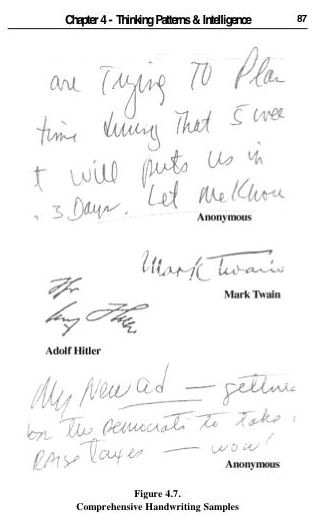 Chapter 4 - Thinking Patterns & Intelligence 87
are Trying TO Plan
time during That 5 wee
t will puts us in
. 3 Days. Let Me Know
Anonymous
Mark Twain
Mark Twain
Hitler
Adolf Hitler
My New ad — getting
the Democrats to take
RAISE Taxes — wow!
Anonymous
Figure 4.7.
Comprehensive Handwriting Samples